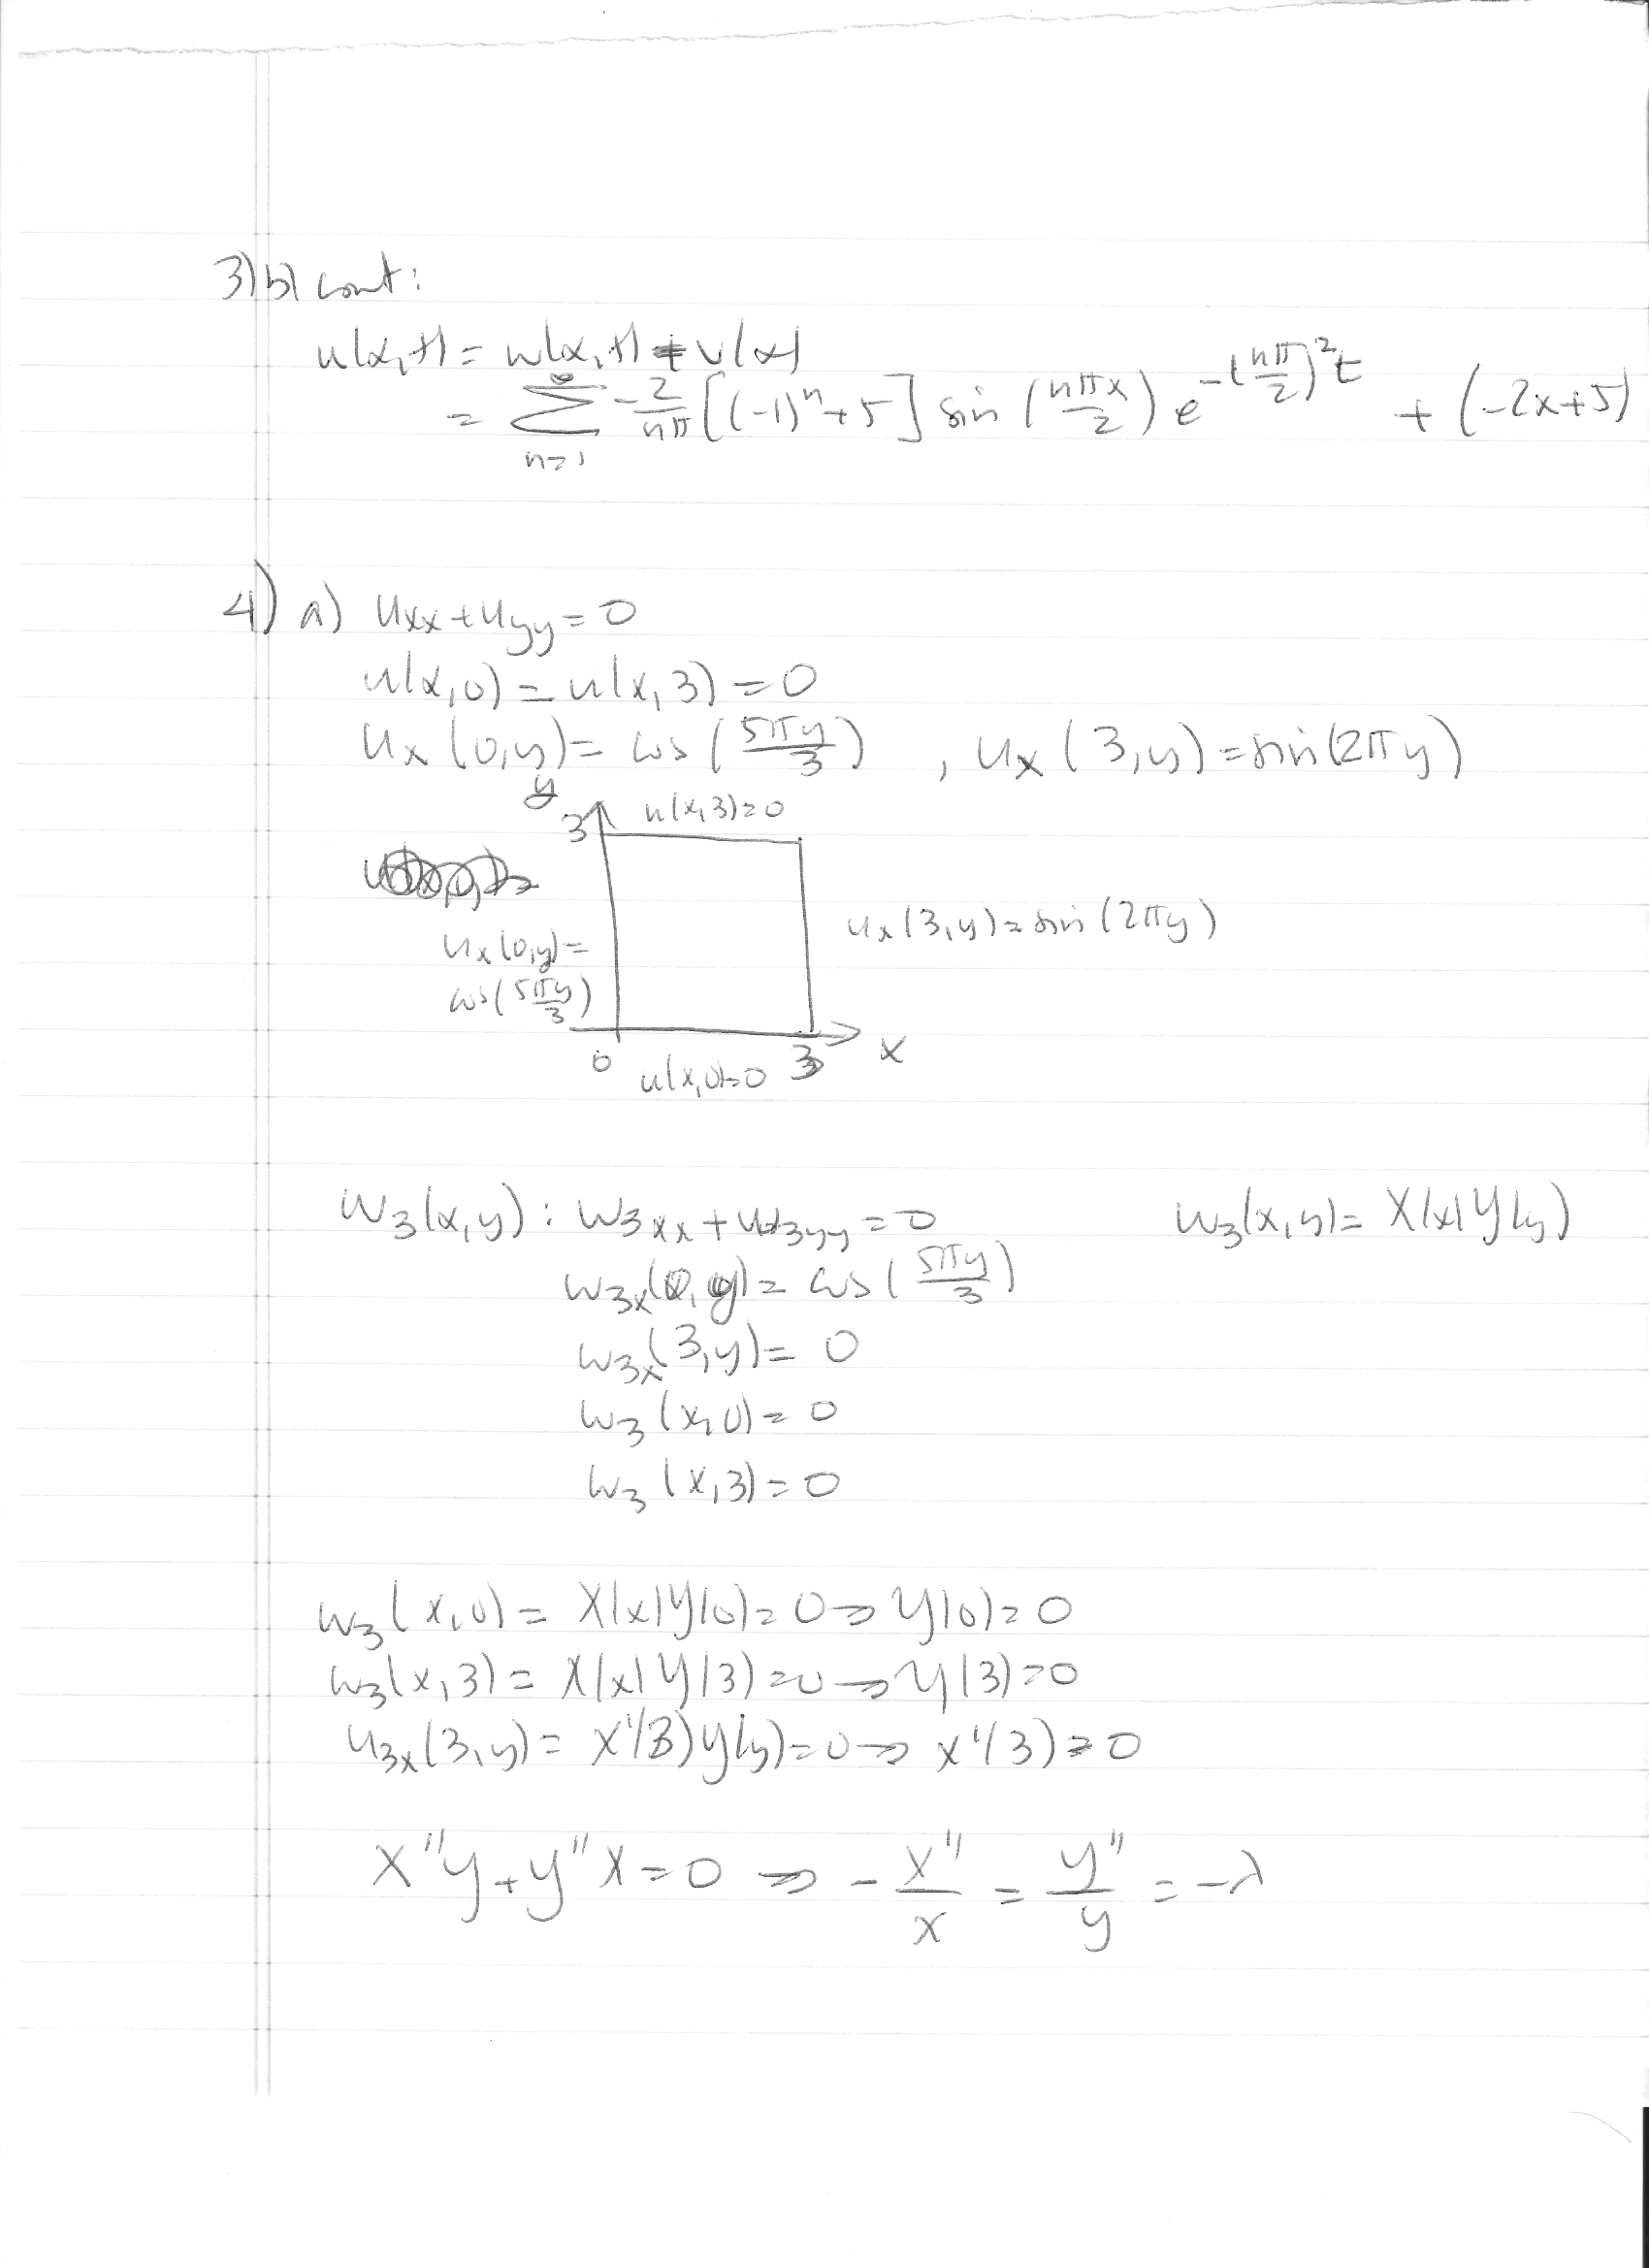 3) b) cont:
u(x,t) = w(x,t) + v(x)
= ∞ Σ n=1 -2/nπ [(-1)^n + 5] sin (nπx/2) e^-(nπ/2)^2 t + (-2x+5)
4) a) Uxx + Uyy = 0
u(x,0) = u(x,3) = 0
Ux (0,y) = cos (5πy/3) , Ux (3,y) = sin(2πy)
y
3 u(x,3)=0
Ux(3,y) = sin (2πy)
Ux(0,y) =
cos(5πy/3)
0 u(x,0)=0 3 x
W3(x,y) : W3xx + W3yy = 0 W3(x,y) = X(x)Y(y)
W3x(0,y) = cos (5πy/3)
W3x(3,y) = 0
W3 (x,0) = 0
W3 (x,3) = 0
W3(x,0) = X(x)Y(0) = 0 → Y(0) = 0
W3(x,3) = X(x)Y(3) = 0 → Y(3) = 0
U3x(3,y) = X'(3)Y(y) = 0 → X'(3) = 0
X''Y + Y''X = 0 → -X''/X = Y''/Y = -λ